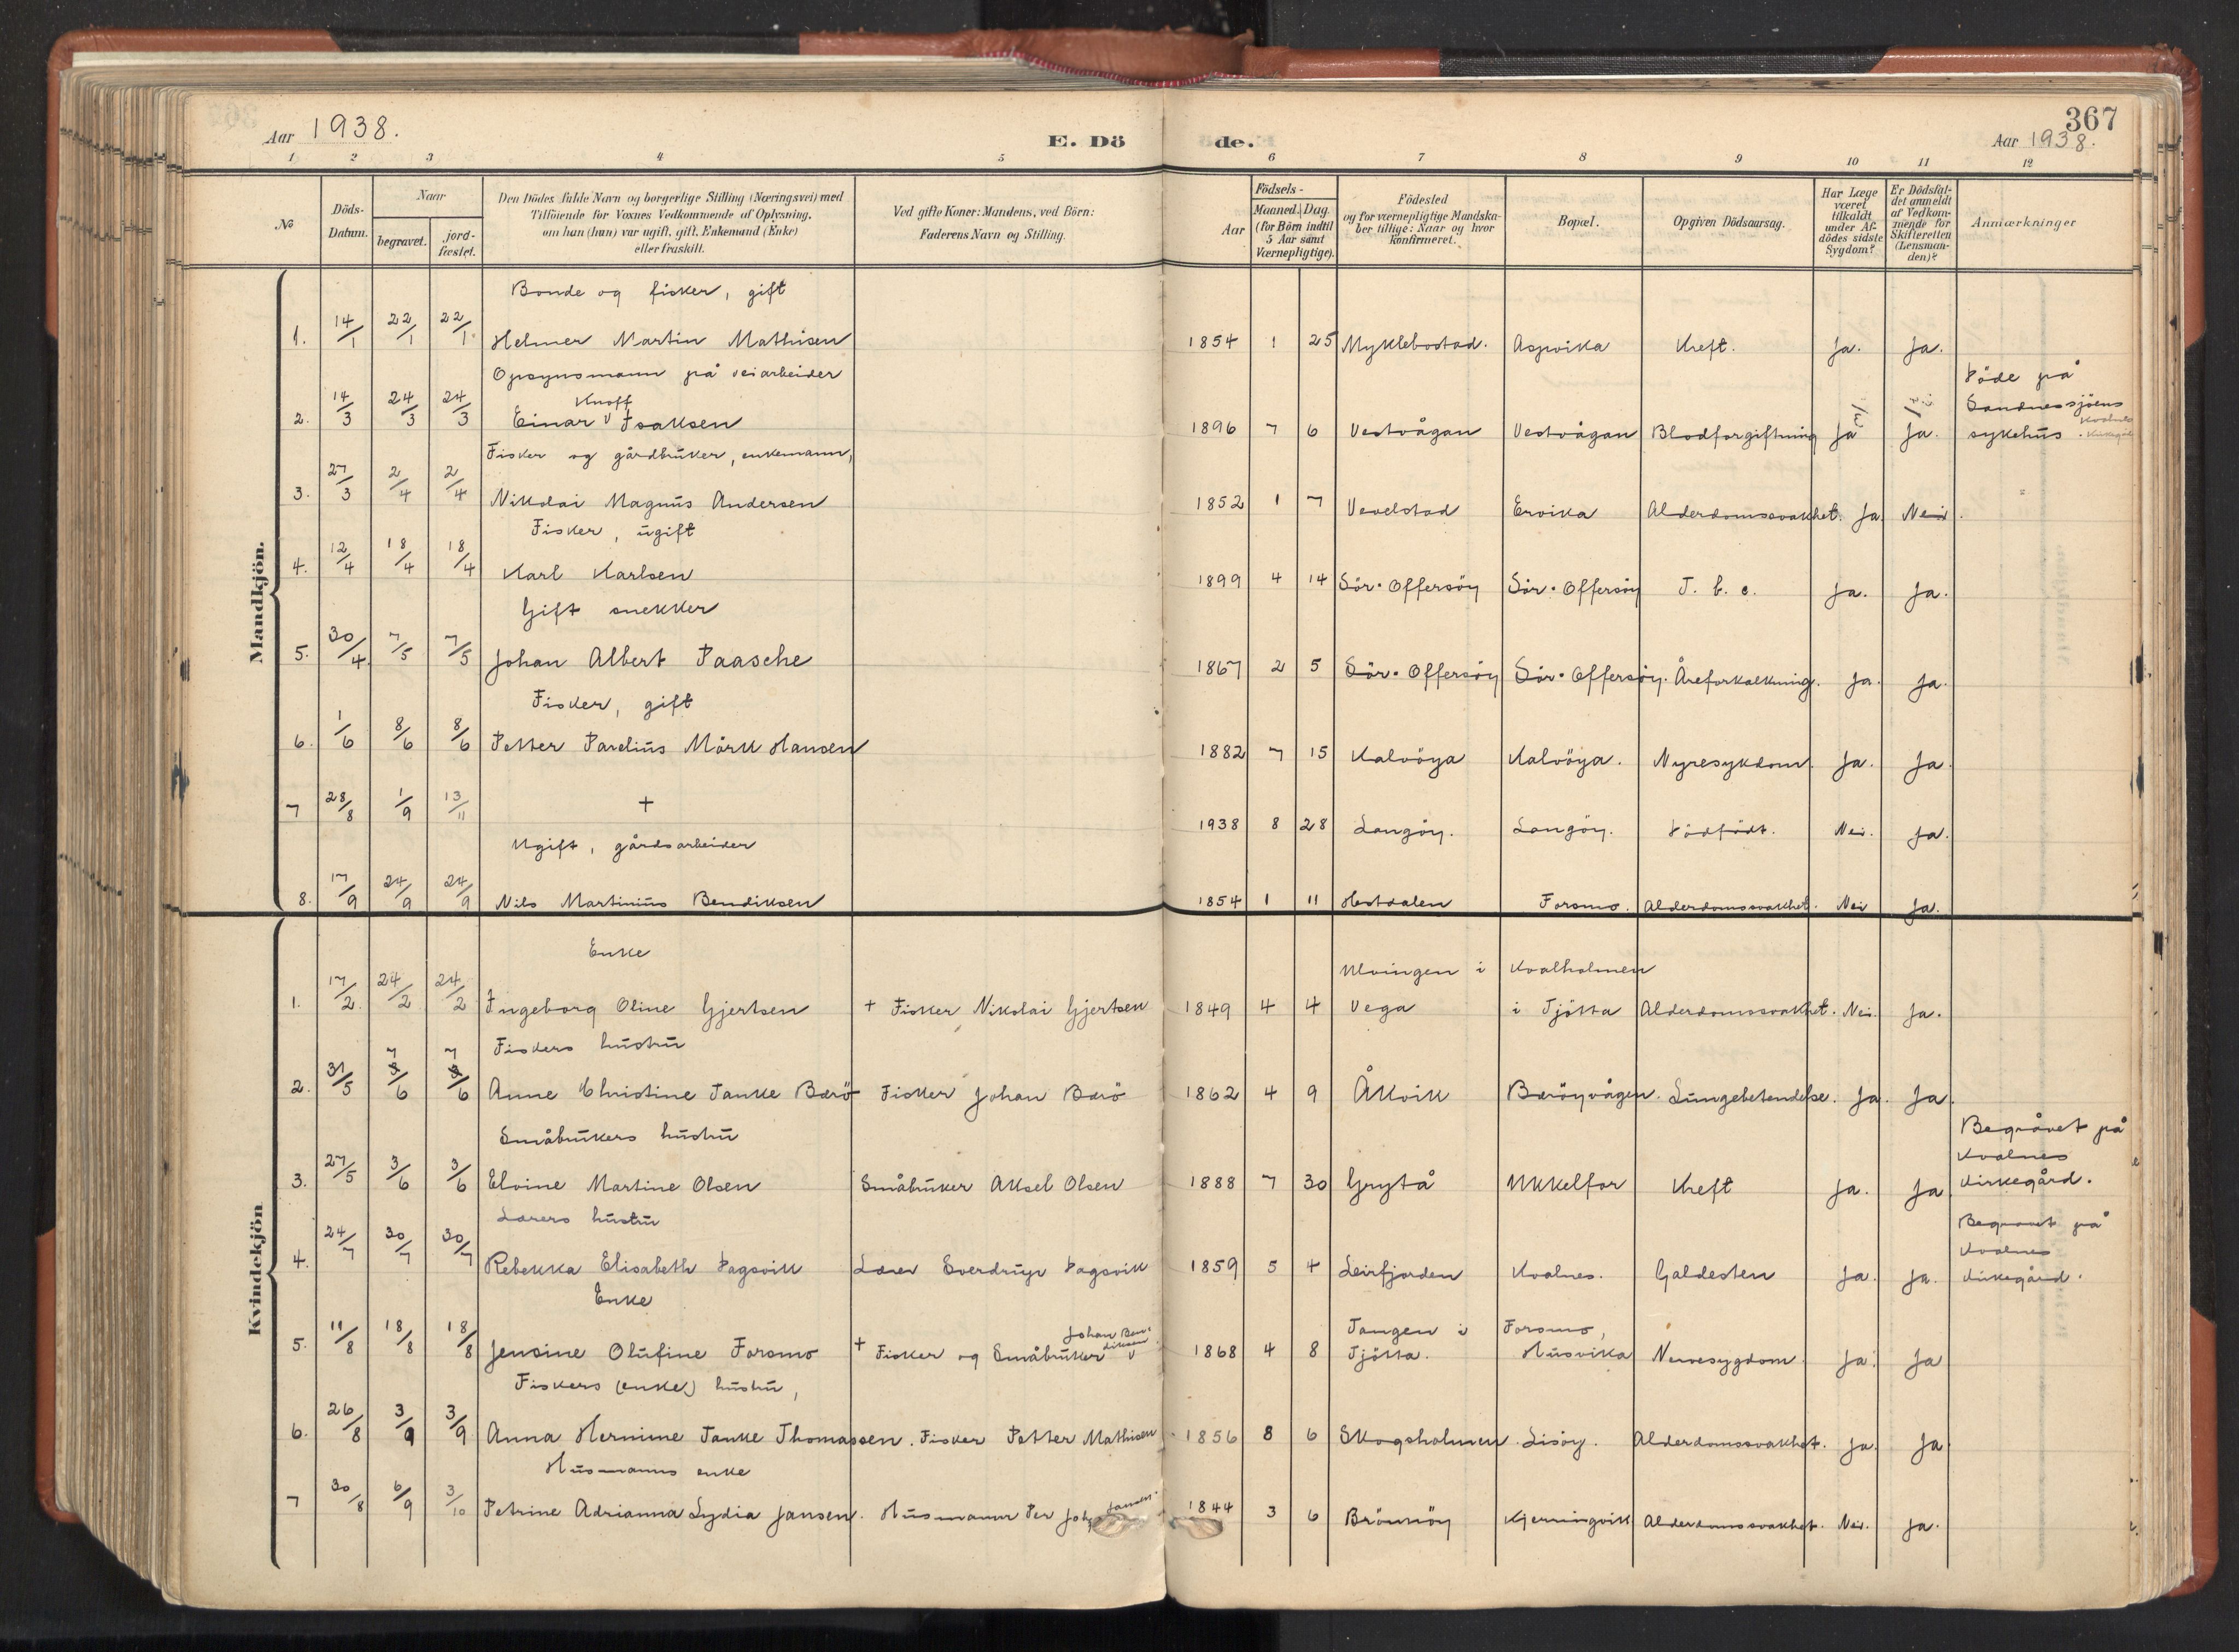 367
Aar 1938. E. Dö de. Aar 1938.
1 2 3 4 5 6 7 8 9 10 11 12
No
Döds-Datum.
Naar
begravet. jord-fæstet.
Den Dödes fulde Navn og borgerlige Stilling (Næringsvei) med
Tilföiende for Voxnes Vedkommende af Oplysning,
om han (hun) var ugift, gift, Enkemand (Enke)
eller fraskilt.
Ved gifte Koner: Mandens, ved Börn:
Faderens Navn og Stilling.
Aar
Födsels-
Maaned. Dag.
(for Börn indtil
5 Aar samt
Værnepligtige).
Födested
og for værnepligtige Mandska-
ber tillige: Naar og hvor
konfirmeret.
Bopæl.
Opgiven Dödsaarsag.
Har Læge
været
tilkaldt
under Af-
dödes sidste
Sygdom?
Er Dödsfal-
det anmeldt
af Vedkom-
mende for
Skifteretten
(Lensman-
den)?
Anmærkninger
Mandkjön.
Bonde og fisker, gift
1. 14/1 22/1 22/1. Helmer Martin Mathisen 1854 1 25 Myklebostad. Aspvika Kreft. Ja. Ja.
Opsynsmann på veiarbeider
Knoff
2. 14/3 24/3 24/3 Einar v Isaksen 1896 7 6 Vestvågan Vestvågan Blodforgiftning Ja Ja. Döde på
Sandnessjöens
sykehus.
Fisker og gårdbruker, enkemann,
3. 27/3 2/4 2/4 Nikolai Magnus Andersen 1852 1 7 Vevelstad Ervika Alderdomssvakhet. Ja Nei.
Fisker, ugift
4. 12/4 18/4 18/4 Karl Karlsen 1899 4 14 Sör-Offersöy Sör-Offersöy T. b. c. Ja. Ja.
Gift snekker
5. 30/4. 7/5 7/5 Johan Albert Paasche 1867 2 5 Sör-Offersöy Sör-Offersöy. Åreforkalkning. Ja. Ja.
Fisker, gift
6. 1/6 8/6 8/6 Petter Parelius Mörk Hansen 1882 7 15 Kalvöya Kalvöya. Nyresykdom. Ja. Ja.
7 28/8 1/9 13/11 + 1938 8 28 Langöy. Langöy. Dödfödt. Nei. Ja.
Ugift, gårdsarbeider
8. 17/9 24/9 24/9 Nils Martinius Bendiksen 1854 1 11 Hestdalen Forsmo. Alderdomssvakhet. Nei Ja.
Kvindekjön
Enke
1. 17/2. 24/2 24/2 Ingeborg Oline Gjertsen + Fisker Nikolai Gjertsen 1849 4 4 Ulvingen i Vega Kvalholmen i Tjötta Alderdomssvakhet. Nei. Ja.
Fiskers hustru
2. 31/5 7/6 7/6 Anne Christine Tanke Bærö Fisker Johan Bærö 1862 4 9 Åkvik Bæröyvågen. Lungebetendelse. Ja. Ja.
Småbrukers hustru
3. 27/5 3/6 3/6 Elvine Martine Olsen Småbruker Aksel Olsen 1888 7 30 Grytå Ukkelfor Kreft Ja. Ja Begravet på
Kvalnes
kirkegård.
Lærers hustru
4. 24/7 30/7 30/7 Rebekka Elisabeth Dagsvik Lærer Sverdrup Dagsvik 1859 5 4 Leirfjorden Kvalnes. Galdesten Ja. Ja. Begravet på
Kvalnes
kirkegård.
Enke
5. 11/8 18/8 18/8 Jensine Olufine Forsmo + Fisker og Småbruker v Johan Ben-
diksen 1868 4 8 Tangen i Tjötta. Forsmo, Husvika Nervesygdom. Ja. Ja
Fiskers (enke) hustru,
6. 26/8 3/9 3/9 Anna Hermine Tanke Thomassen. Fisker Petter Mathisen 1856 8 6 Skogsholmen Lisöy. Alderdomssvakhet. Ja. Ja
Husmanns enke
7 30/8 6/9 3/10 Petrine Adrianna Lydia Jansen. Husmann Per Joh Jansen. 1844 3 6 Brönnöy Kjerringvik Alderdomssvakhet. Nei. Ja.